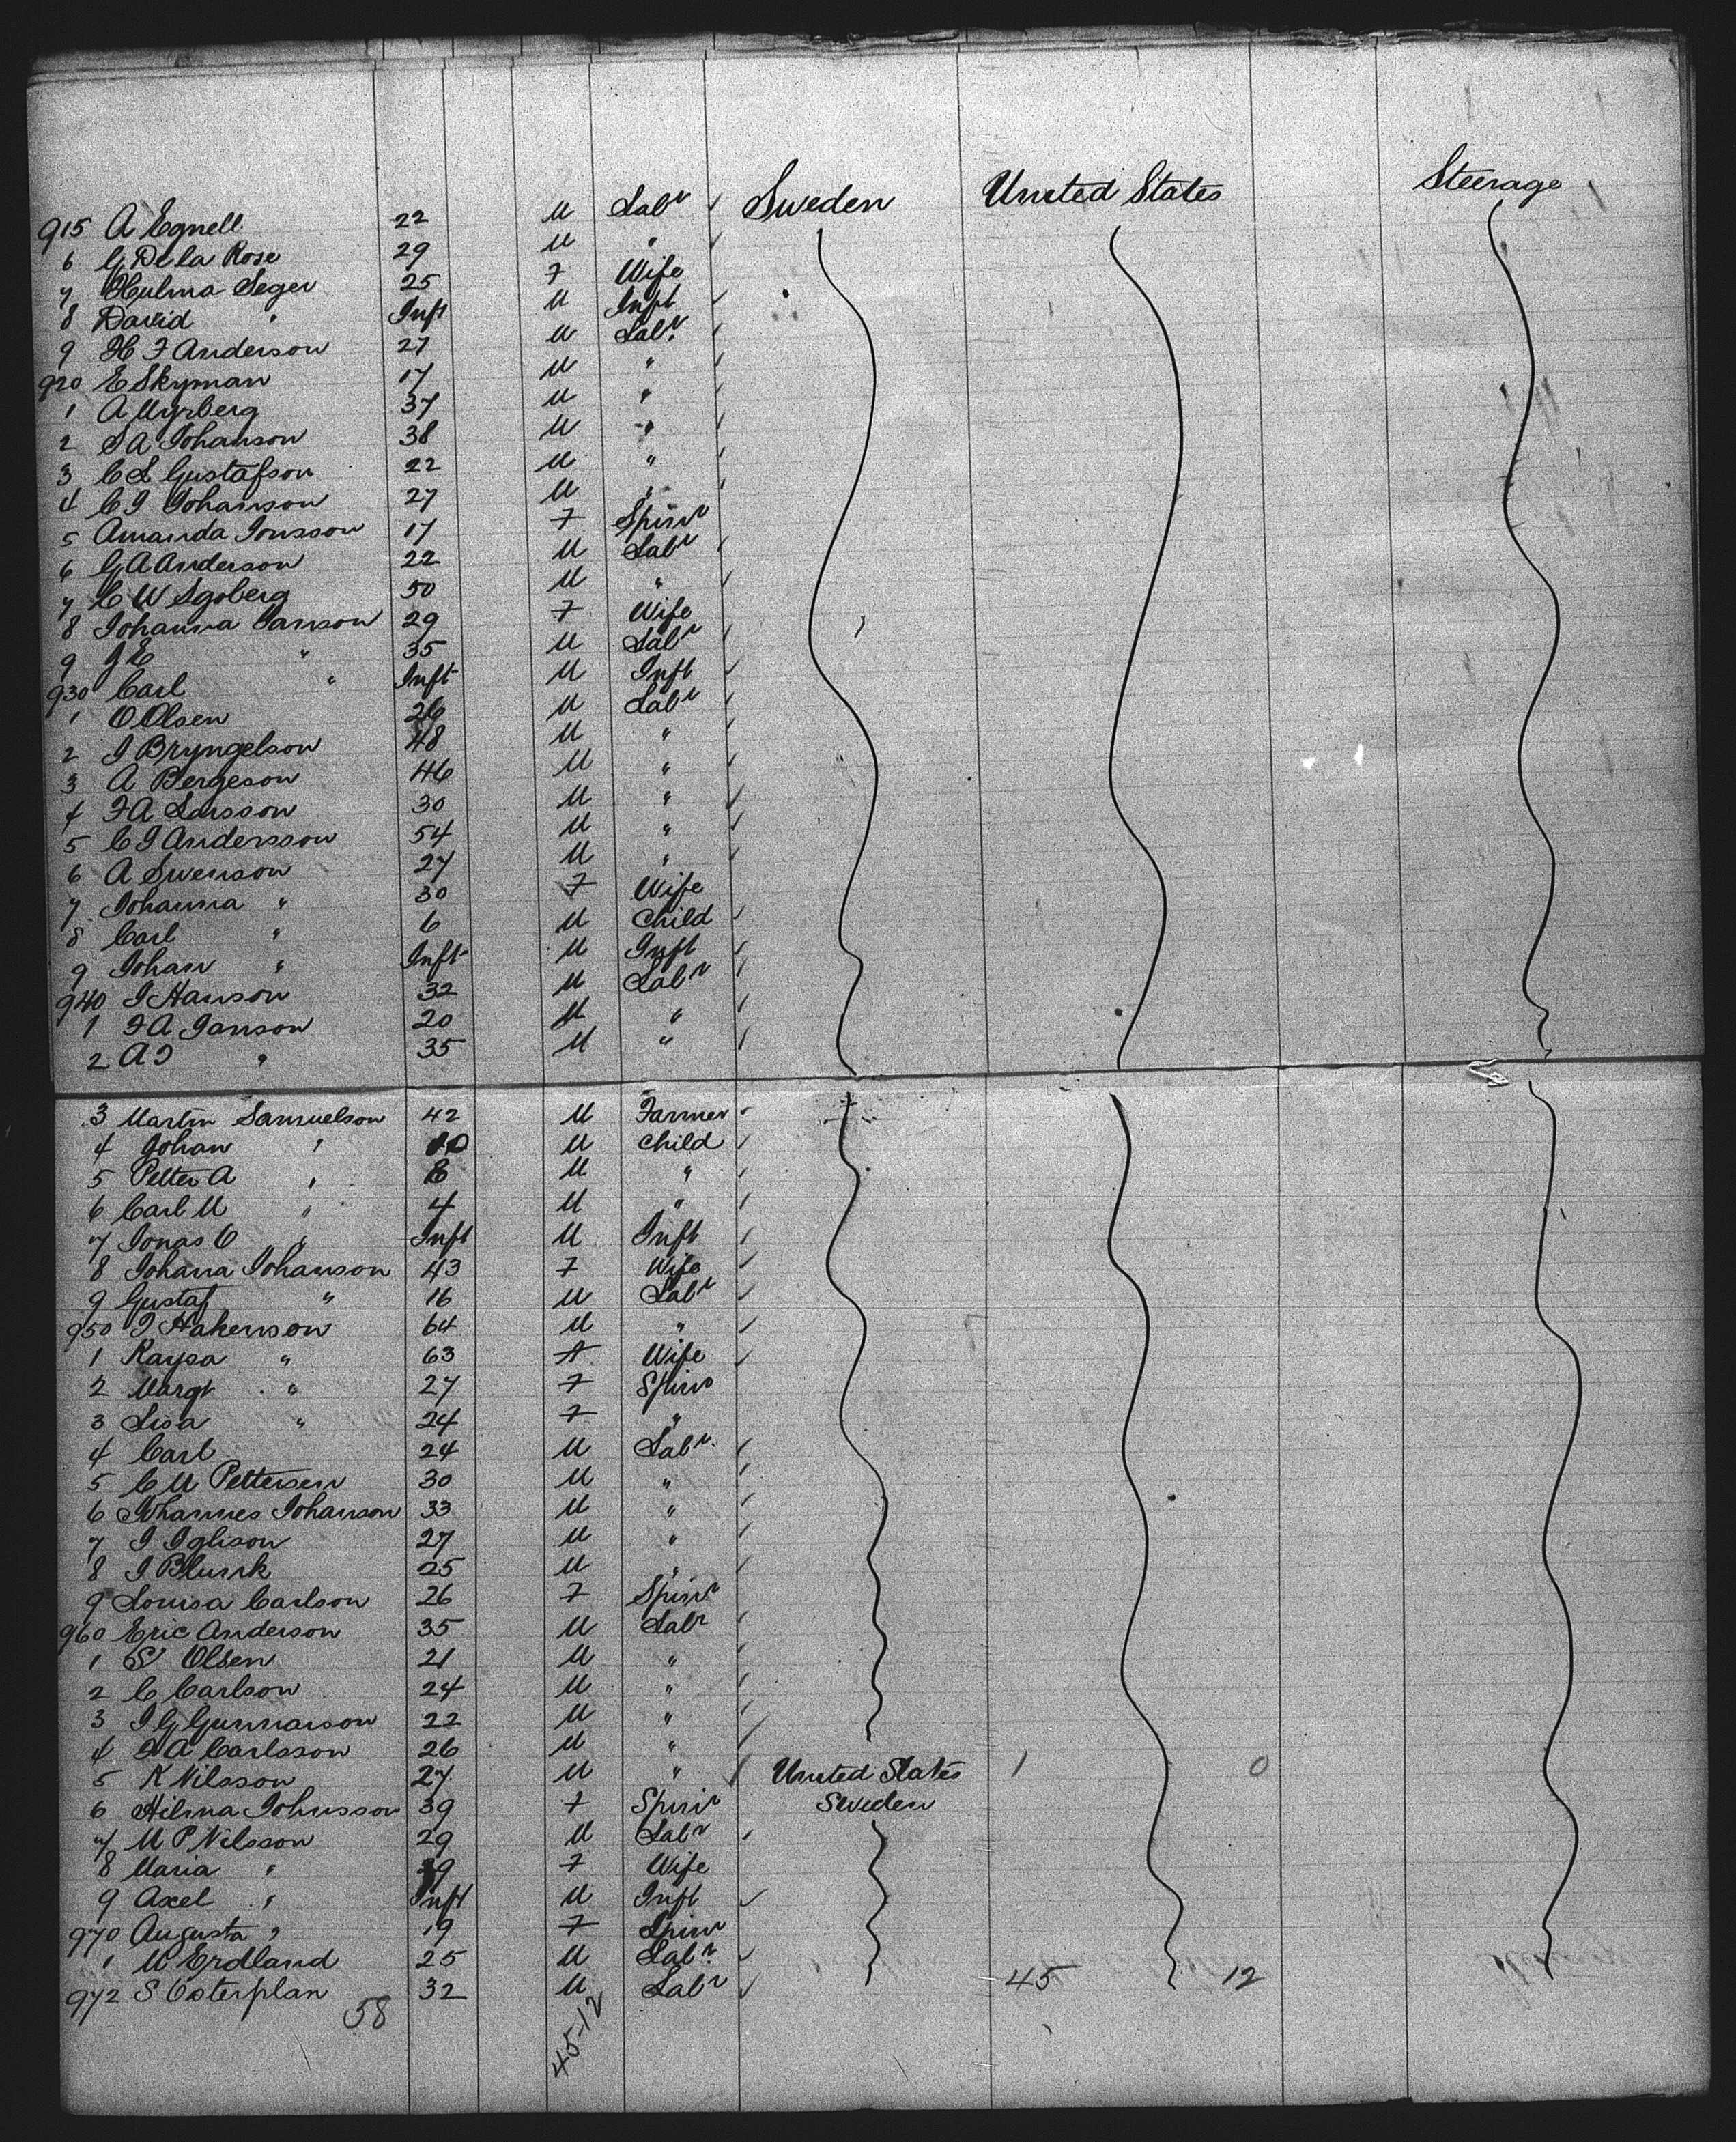 Sweden United States Steerage
915 A Egnell 22 M Labr
6 G De la Rose 29 M "
7 Hulma Seger 25 F Wife
8 David " Inft M Inft
9 H F Anderson 27 M Labr
920 E Skyman 17 M "
1 A Myrberg 37 M "
2 S A Johanson 38 M "
3 C L Gustafson 22 M "
4 C J Johanson 27 M "
5 Amanda Jonsson 17 F Spinr
6 G A Anderson 22 M Labr
7 C W Sgoberg 50 M "
8 Johanna Janson 29 F Wife
9 J E " 35 M Labr
930 Carl " Inft M Inft
1 O Olsen 26 M Labr
2 J Bryngelson 48 M "
3 A Bergeson 46 M "
4 F A Larsson 30 M "
5 C J Andersson 54 M "
6 A Swenson 27 M "
7 Johanna " 30 F Wife
8 Carl " 6 M Child
9 Johan " Inft M Inft
940 J Hanson 32 M Labr
1 F A Janson 20 M "
2 A J " 35 M "
3 Martin Samuelson 42 M Farmer
4 Johan " 10 M Child
5 Petter A " 8 M "
6 Carl M " 4 M "
7 Jonas C " Inft M Inft
8 Johana Johanson 43 F Wife
9 Gustaf " 16 M Labr
950 J Hakenson 64 M "
1 Kaysa " 63 F Wife
2 Margt " 27 F Spinr
3 Lisa " 24 F "
4 Carl 24 M Labr
5 C M Pettersen 30 M "
6 Johannes Johanson 33 M "
7 J Iglison 27 M "
8 J Blunk 25 M "
9 Louisa Carlson 26 F Spinr
960 Eric Anderson 35 M Labr
1 S Olsen 21 M "
2 C Carlson 24 M "
3 J G Gunnarson 22 M "
4 F A Carlsson 26 M "
5 K Nilsson 27 M " United States 1 0
6 Hilma Johnsson 39 F Spinr Sweden
7 M P Nilsson 29 M Labr
8 Maria " 29 F Wife
9 Axel " Inft M Inft
970 Augusta " 19 F Spinr
1 M Erdland 25 M Labr
972 S Osterplan 32 M Labr 45 12
58 45-12